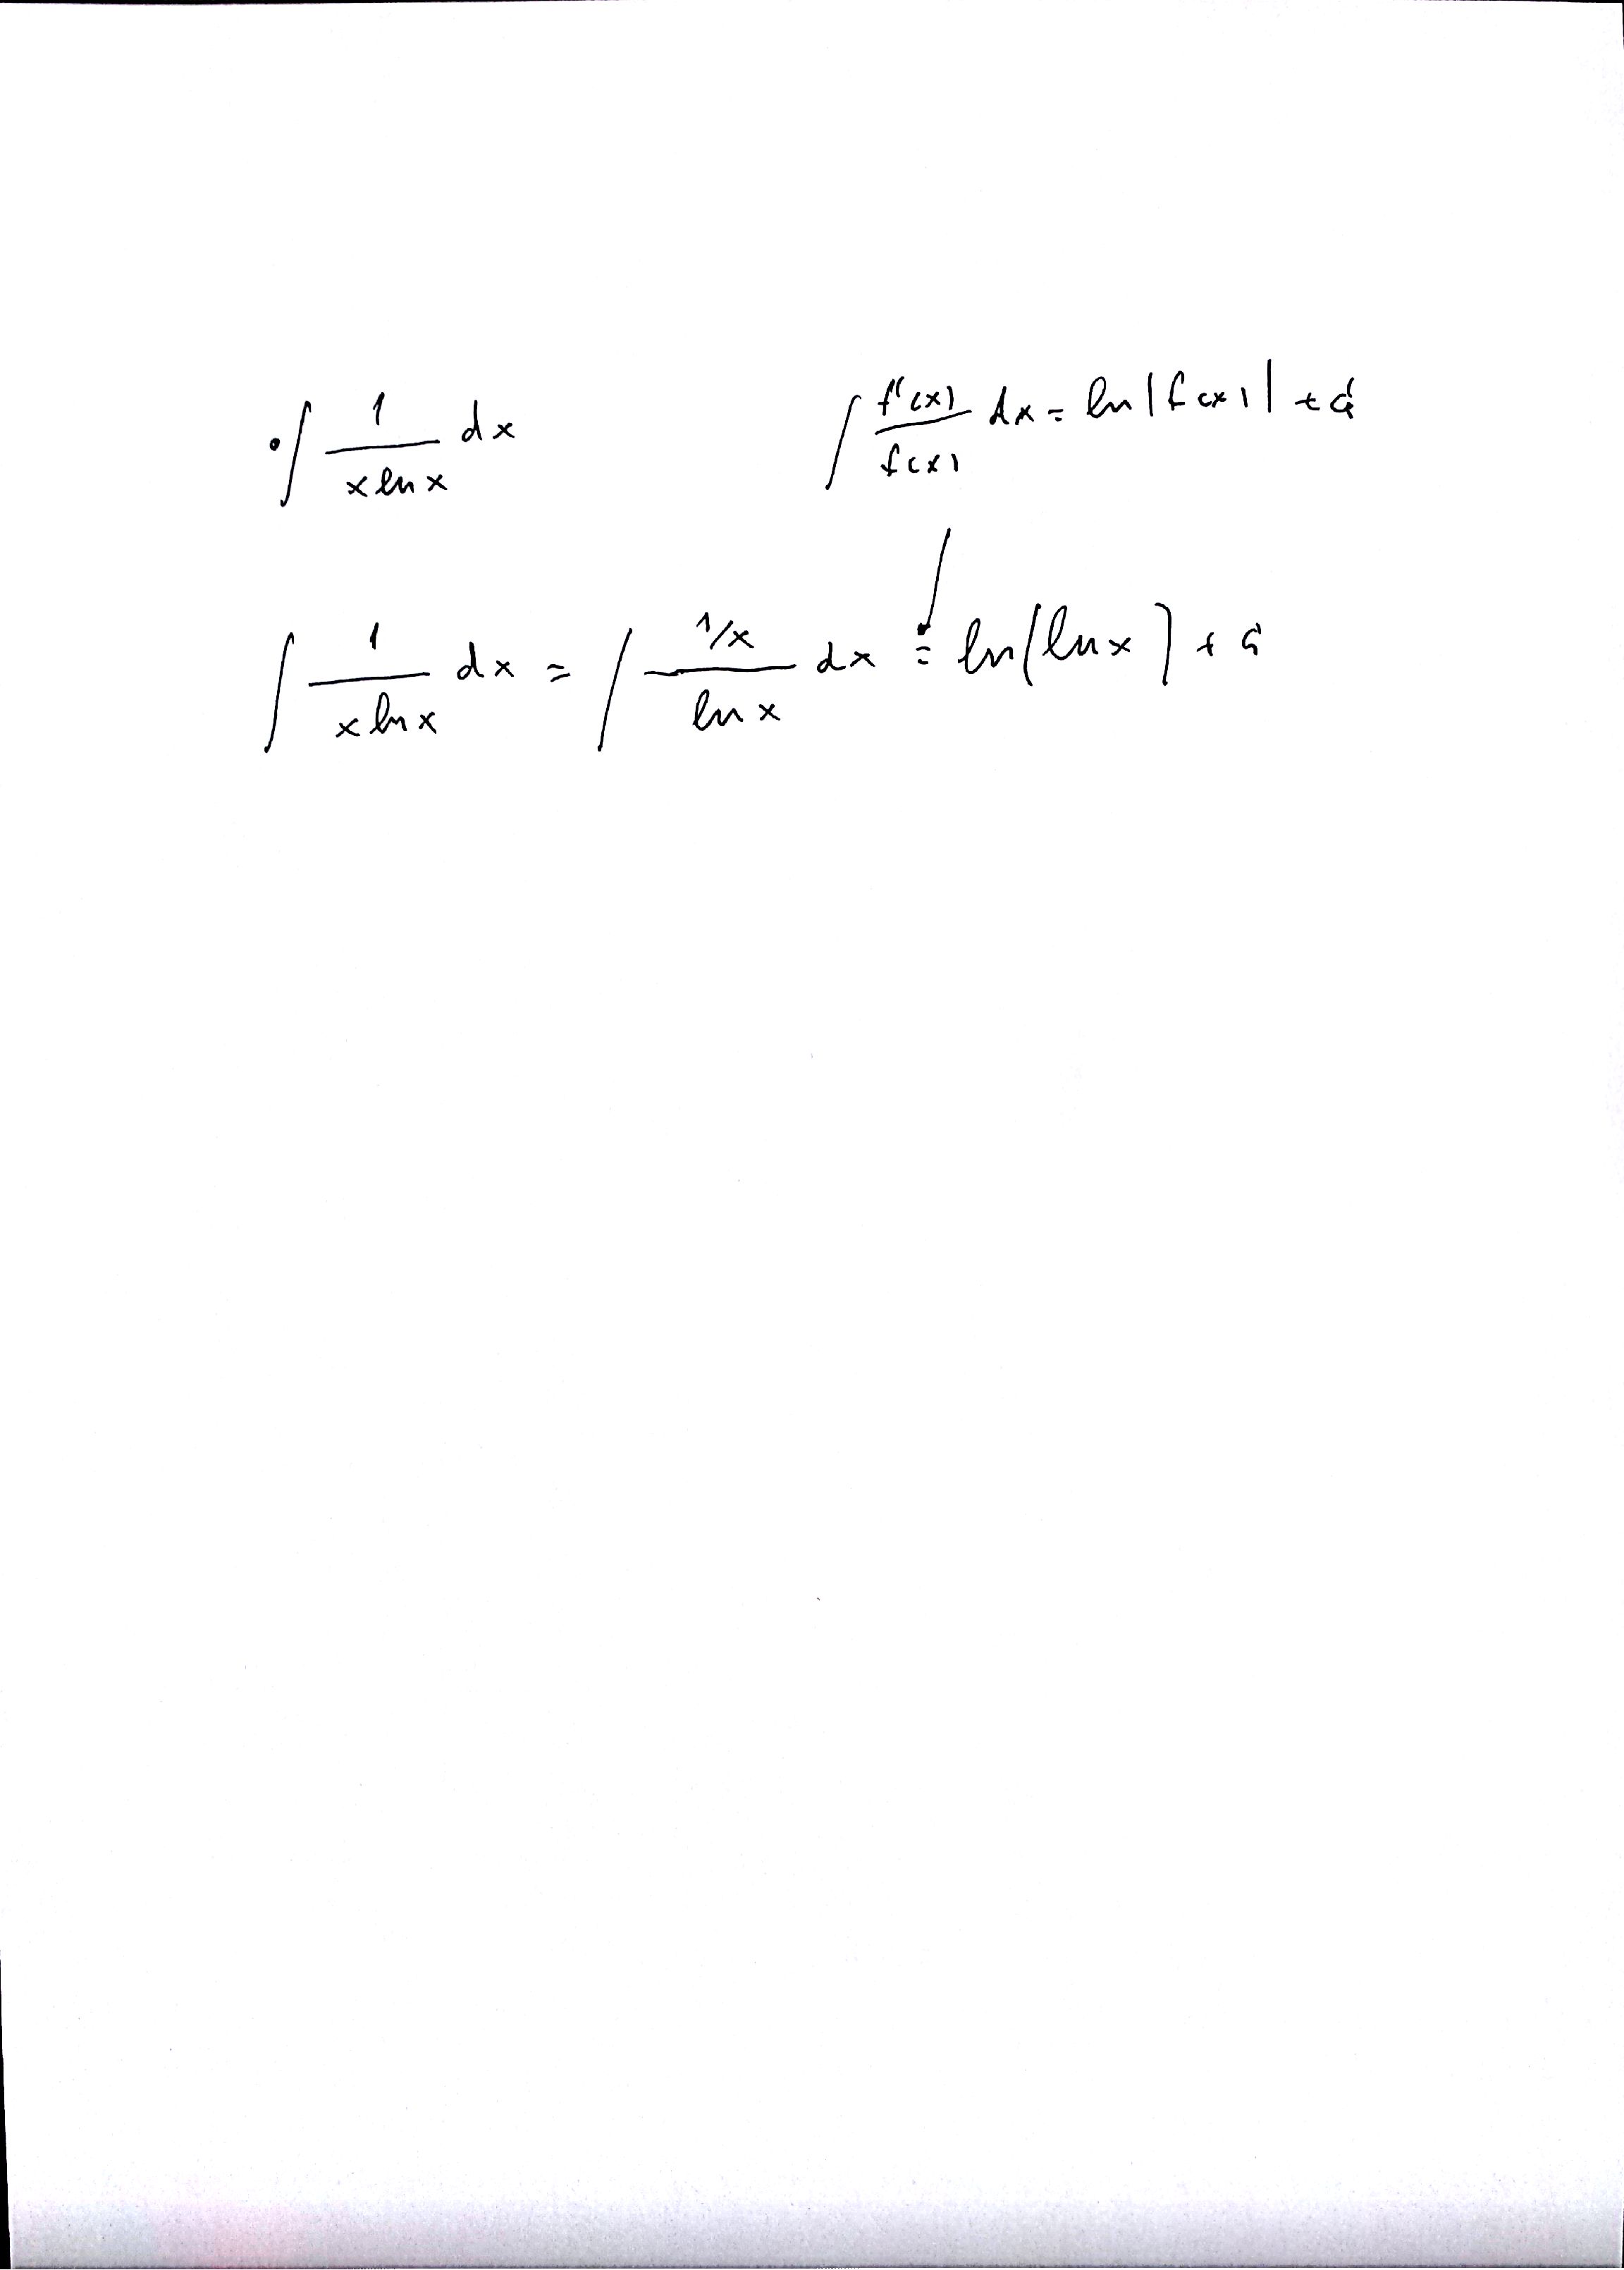 • ∫ 1/(x ln x) dx ∫ f'(x)/f(x) dx = ln|f(x)| + C
∫ 1/(x ln x) dx = ∫ (1/x)/(ln x) dx = ln|ln x| + C